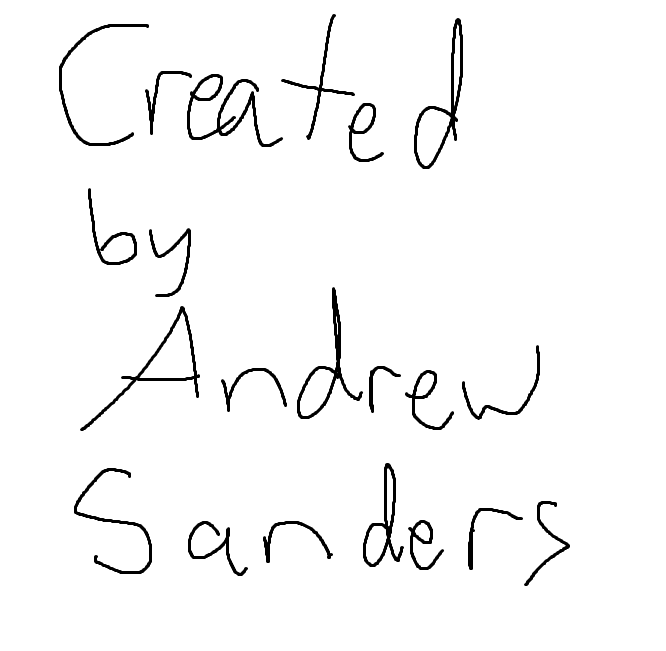 Created
by
Andrew
Sanders